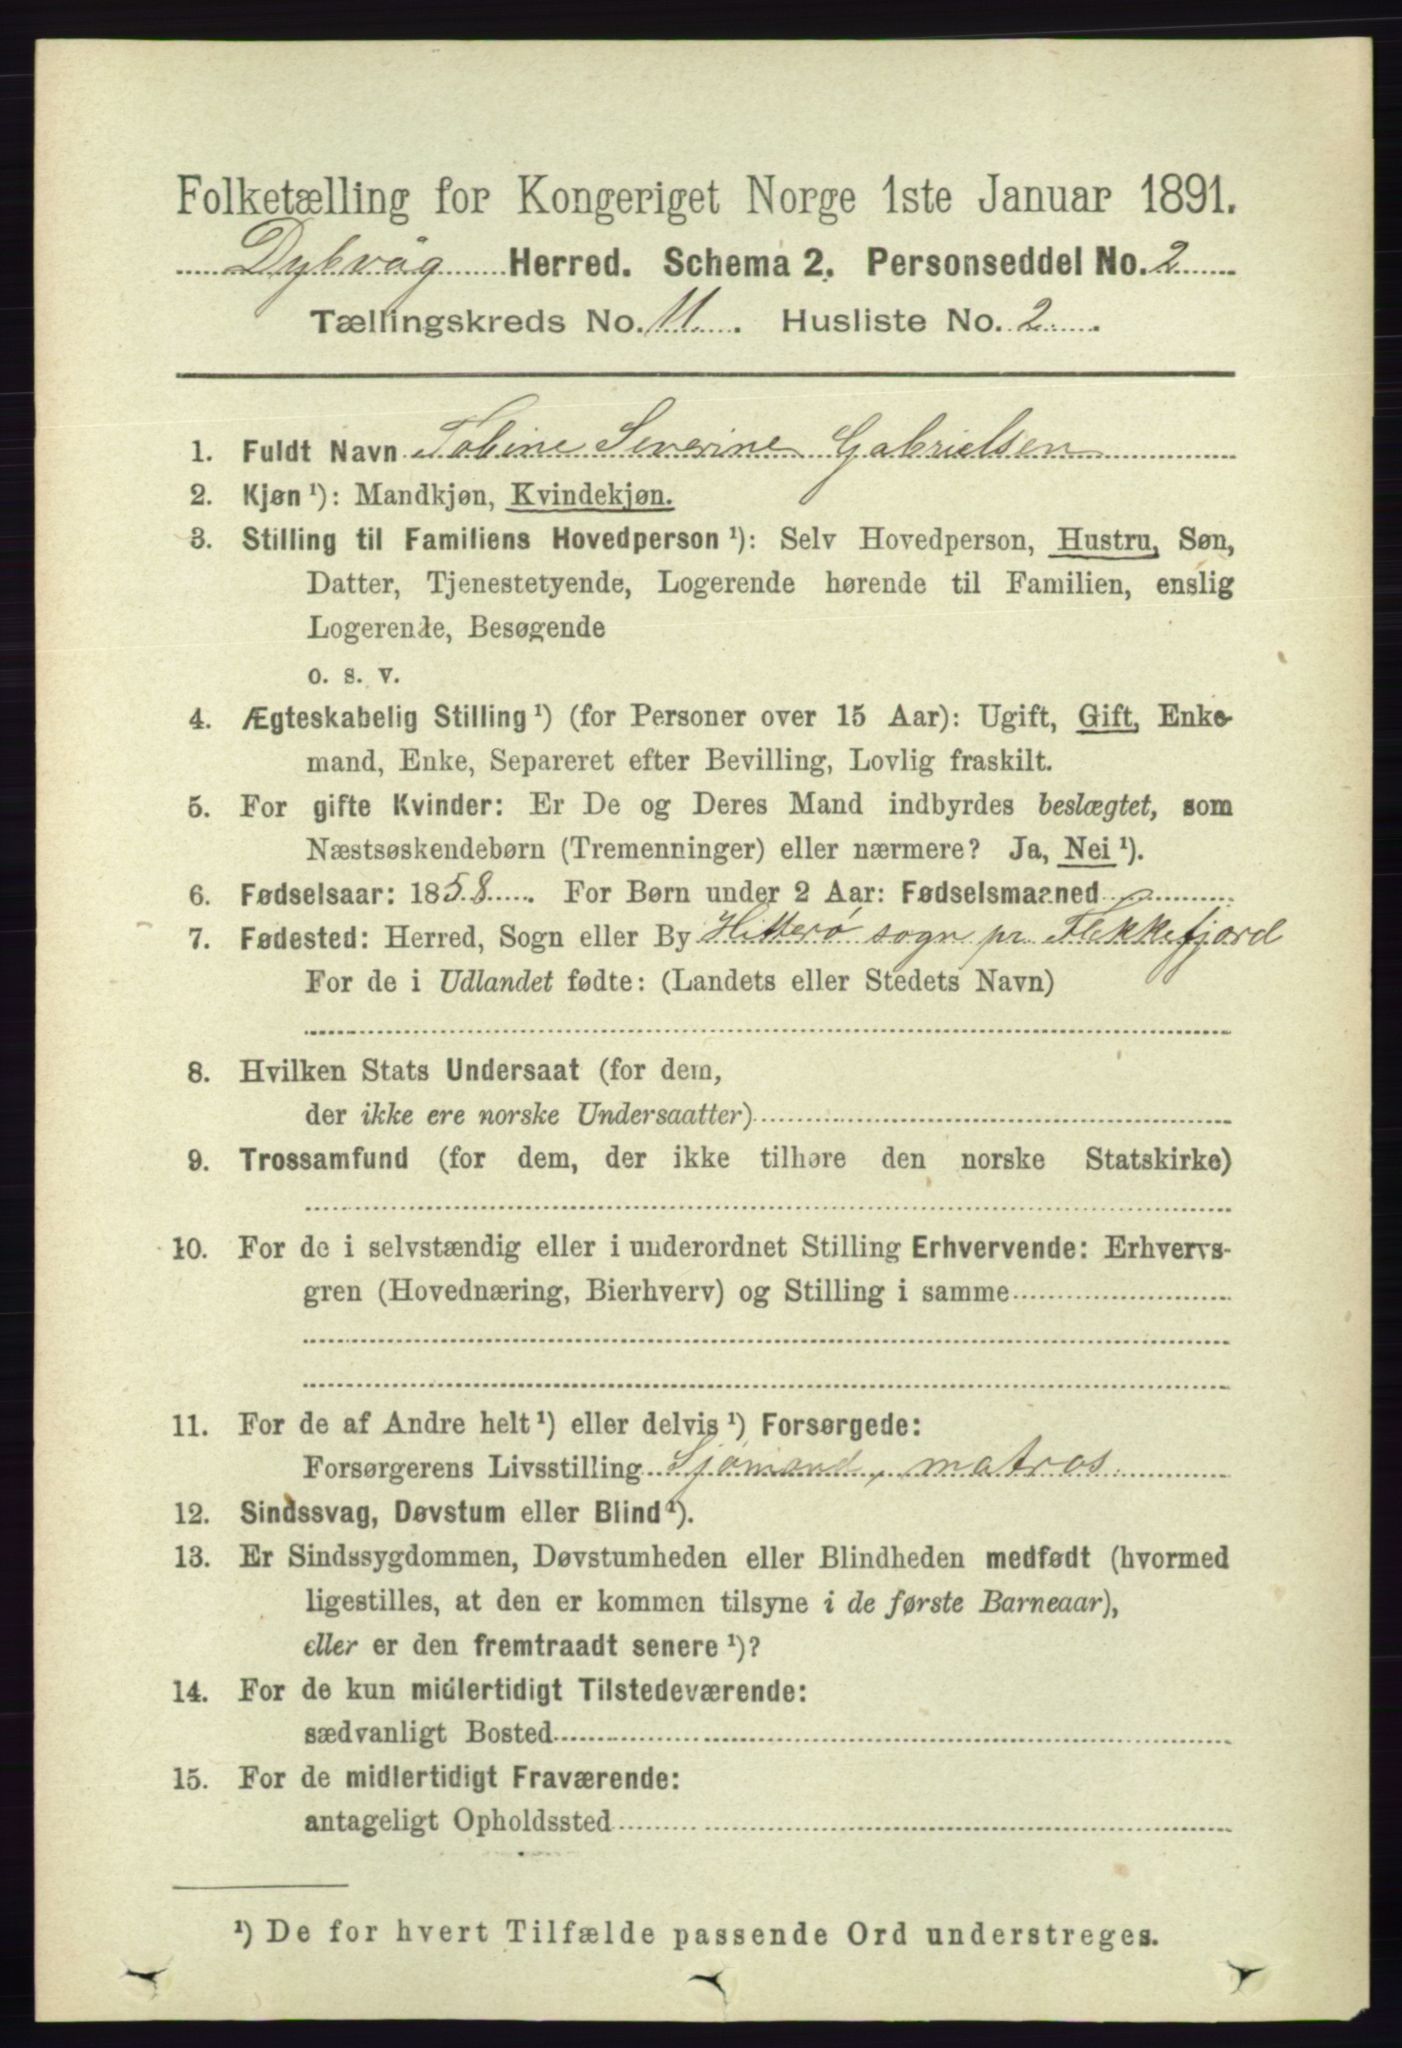 Folketælling for Kongeriget Norge 1ste Januar 1891.
Dybvåg Herred. Schema 2. Personseddel No. 2
Tællingskreds No. 11. Husliste No. 2.
1. Fuldt Navn Tobine Severine Gabrielsen
2. Kjøn ¹): Mandkjøn, Kvindekjøn.
3. Stilling til Familiens Hovedperson ¹): Selv Hovedperson, Hustru, Søn,
Datter, Tjenestetyende, Logerende hørende til Familien, enslig
Logerende, Besøgende
o. s. v.
4. Ægteskabelig Stilling ¹) (for Personer over 15 Aar): Ugift, Gift, Enke-
mand, Enke, Separeret efter Bevilling, Lovlig fraskilt.
5. For gifte Kvinder: Er De og Deres Mand indbyrdes beslægtet, som
Næstsøskendebørn (Tremenninger) eller nærmere? Ja, Nei ¹).
6. Fødselsaar: 1858. For Børn under 2 Aar: Fødselsmaaned
7. Fødested: Herred, Sogn eller By Hitterø sogn pr. Flekkefjord
For de i Udlandet fødte: (Landets eller Stedets Navn)
8. Hvilken Stats Undersaat (for dem,
der ikke ere norske Undersaatter)
9. Trossamfund (for dem, der ikke tilhøre den norske Statskirke)
10. For de i selvstændig eller i underordnet Stilling Erhvervende: Erhvervs-
gren (Hovednæring, Bierhverv) og Stilling i samme
11. For de af Andre helt ¹) eller delvis ¹) Forsørgede:
Forsørgerens Livsstilling Sjømand, matros.
12. Sindssvag, Døvstum eller Blind ¹).
13. Er Sindssygdommen, Døvstumheden eller Blindheden medfødt (hvormed
ligestilles, at den er kommen tilsyne i de første Barneaar),
eller er den fremtraadt senere ¹)?
14. For de kun midlertidigt Tilstedeværende:
sædvanligt Bosted
15. For de midlertidigt Fraværende:
antageligt Opholdssted
¹) De for hvert Tilfælde passende Ord understreges.